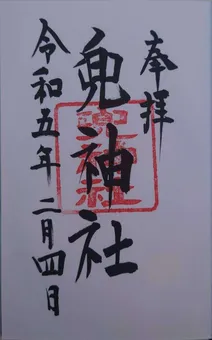 奉拝
兜神社
令和五年二月四日